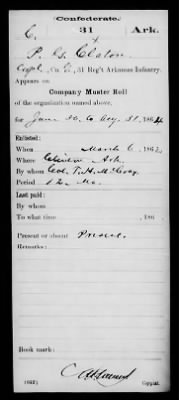 Confederate.
C. 31 Ark.
P. G. Claton
Corpl, Co. C, 31 Reg't Arkansas Infantry.
Appears on
Company Muster Roll
of the organization named above,
for June 30 to Aug. 31, 1864
Enlisted:
When March 6, 1862
Where Ark.
By whom Col. T. H. McCray
Period 12 Mo.
Last paid:
By whom
To what time , 186
Present or absent Present
Remarks:
Book mark:
(642) Copyist.